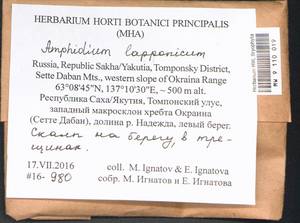 HERBARIUM HORTI BOTANICI PRINCIPALIS
(MHA)
Amphidium lapponicum
Russia, Republic Sakha/Yakutia, Tomponsky District,
Sette Daban Mts., western slope of Okraina Range
63°08'45"N, 137°10'30"E, ~ 500 m alt.
Республика Саха/Якутия, Томпонский улус,
западный макросклон хребта Окраина
(Сетте Дабан), долина р. Надежда, левый берег.
Скалы на берегу, в тре-
щинах.
17.VII.2016
coll. M. Ignatov & E. Ignatova
#16- 980
собр. М. Игнатов и Е. Игнатова
MW 9 110 019